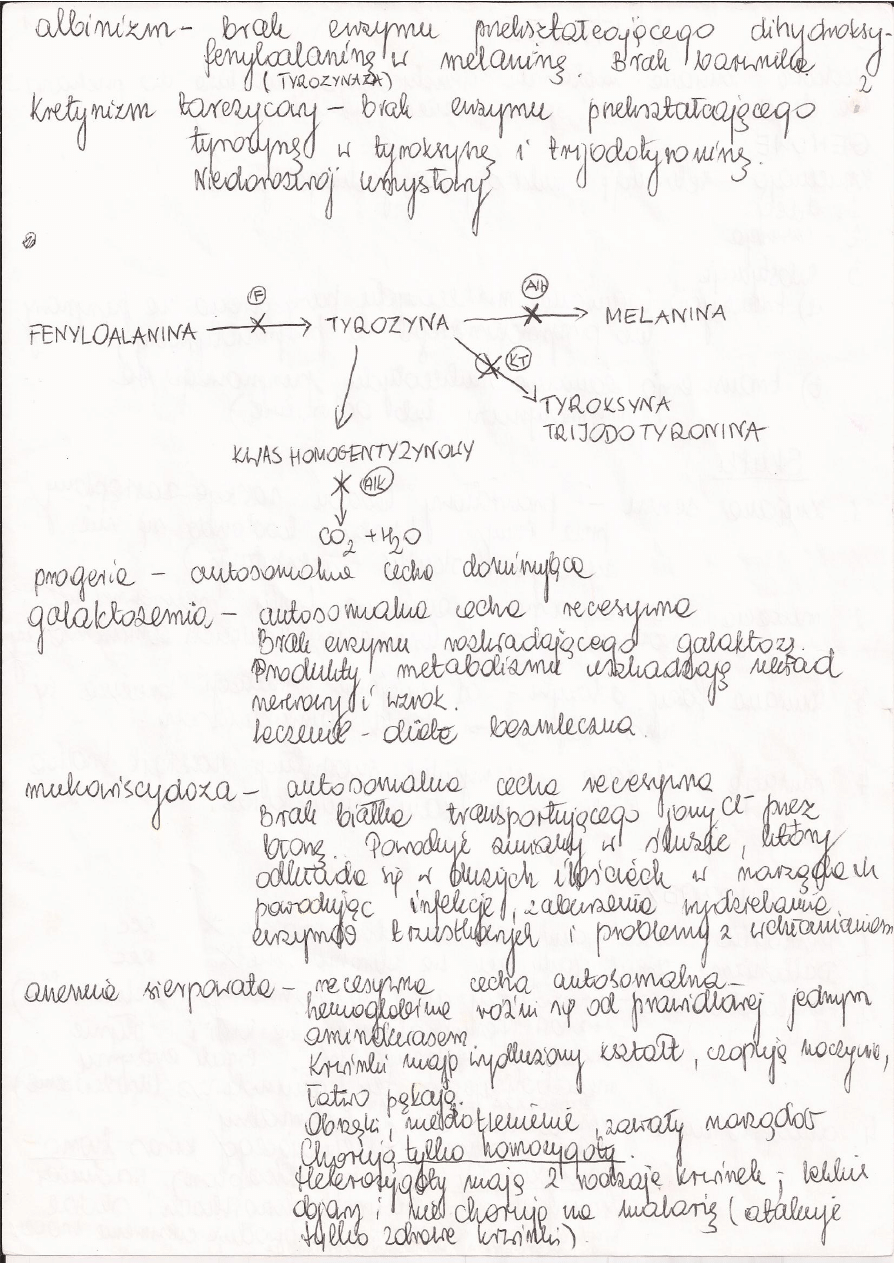 albinizm - brak enzymu przekształcającego dihydroksy-
fenyloalaninę w melaninę. Brak barwnika
(TYROZYNAZA)
2
kretynizm tarczycowy - brak enzymu przekształcającego
tyrozynę w tyroksynę i trijodotyroninę.
Niedorozwój umysłowy
F Alb
FENYLOALANINA TYROZYNA MELANINA
KT
TYROKSYNA
TRIJODOTYRONINA
KWAS HOMOGENTYZYNOWY
Alk
CO2 + H2O
progeria - autosomalna cecha dominująca
galaktozemia - autosomalna cecha recesywna
Brak enzymu rozkładającego galaktozę.
Produkty metabolizmu uszkadzają układ
nerwowy i wzrok.
Leczenie - dieta bezmleczna
mukowiscydoza - autosomalna cecha recesywna
Brak białka transportującego jony Cl- przez
błonę. Powoduje zmiany w śluzie, który
odkłada się w dużych ilościach w narządach
powodując infekcje, zaburzenia wydzielania
enzymów trzustkowych i problemy z wchłanianiem
anemia sierpowata - recesywna cecha autosomalna -
hemoglobina różni się od prawidłowej jednym
aminokwasem.
Krwinki mają wydłużony kształt, czopują naczynia,
łatwo pękają.
Obrzęki, niedotlenienie, zawały narządów
Chorują tylko homozygoty.
Heterozygoty mają 2 rodzaje krwinek; lekkie
objawy i nie chorują na malarię (atakuje
tylko zdrowe krwinki).